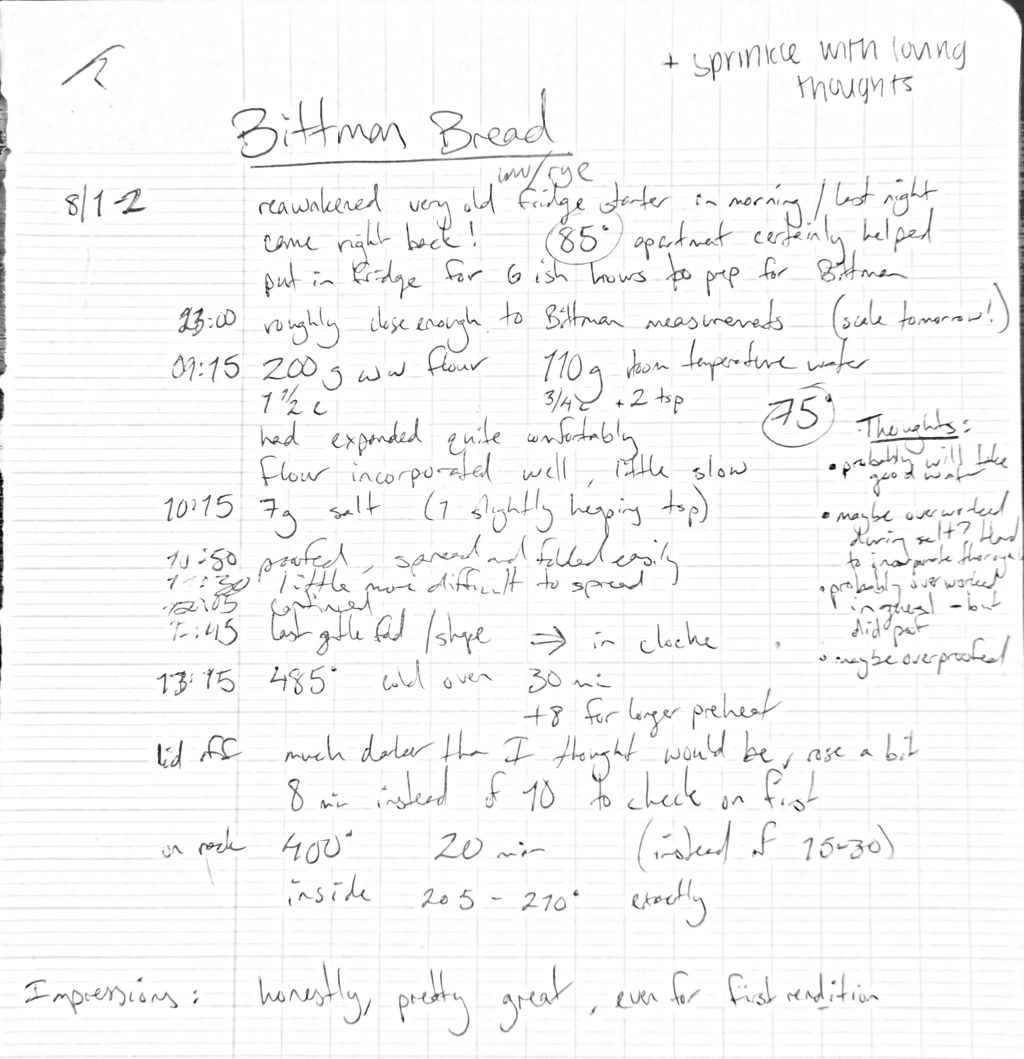 + sprinkle with loving
thoughts
Bittman Bread
ww/rye
8/1-2 reawakened very old fridge starter in morning / last night
came right back! 85° apartment certainly helped
put in fridge for 6 ish hours to prep for Bittman
23:00 roughly close enough to Bittman measurements (scale tomorrow!)
09:15 200g ww flour 110g room temperature water
1 1/2 c 3/4 c + 2 tsp
75°
had expanded quite comfortably
flour incorporated well, little slow
10:15 7g salt (1 slightly heaping tsp)
10:50 proofed, spread and folded easily
11:30 little more difficult to spread
12:05 continued
12:45 last gentle fold / shape ⇒ in cloche
13:15 485° cold oven 30 min
+8 for longer preheat
lid off much darker than I thought would be, rose a bit
8 min instead of 10 to check on first
on rack 400° 20 min (instead of 15-30)
inside 205 - 210° exactly
Thoughts:
• probably will take
good water
• maybe overworked
during salt? Hard
to incorporate thoroughly
• probably overworked
in general - but
did poof
• maybe overproofed
Impressions: honestly, pretty great, even for first rendition